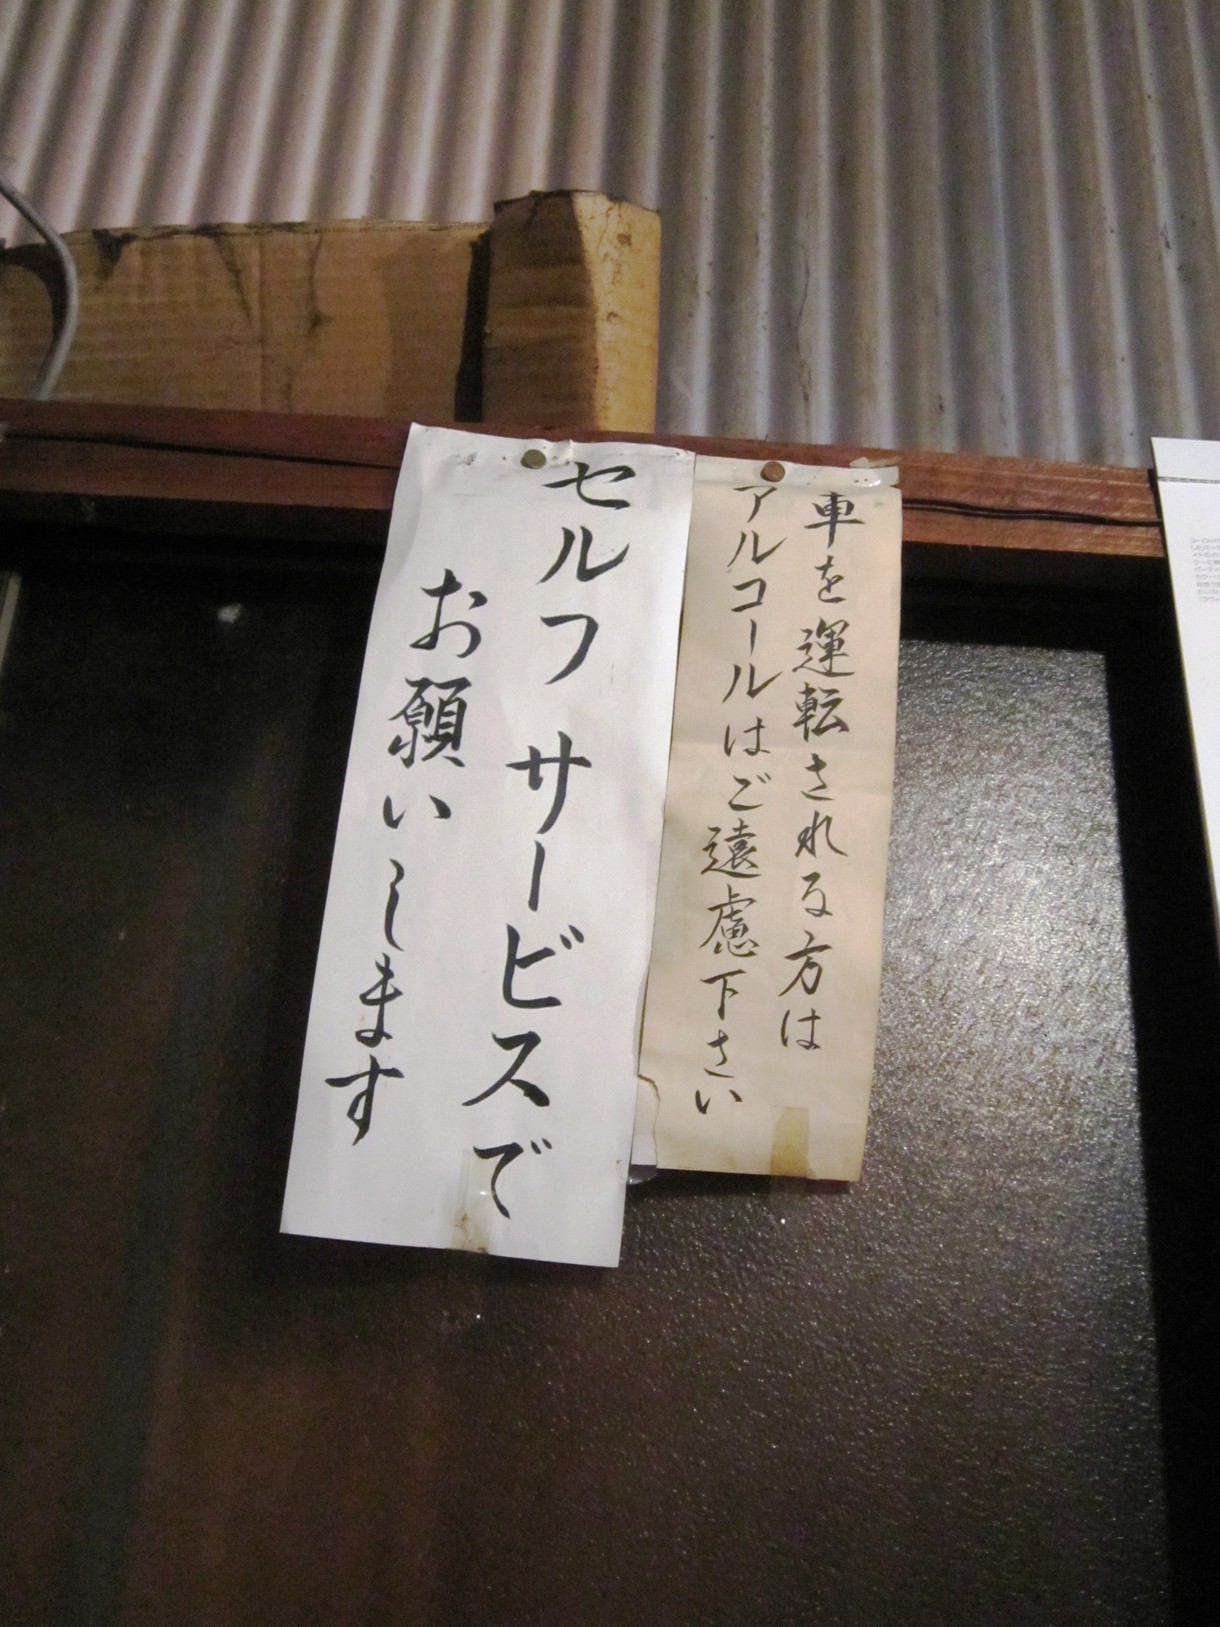 車を運転される方は
アルコールはご遠慮下さい
セルフサービスで
お願いします